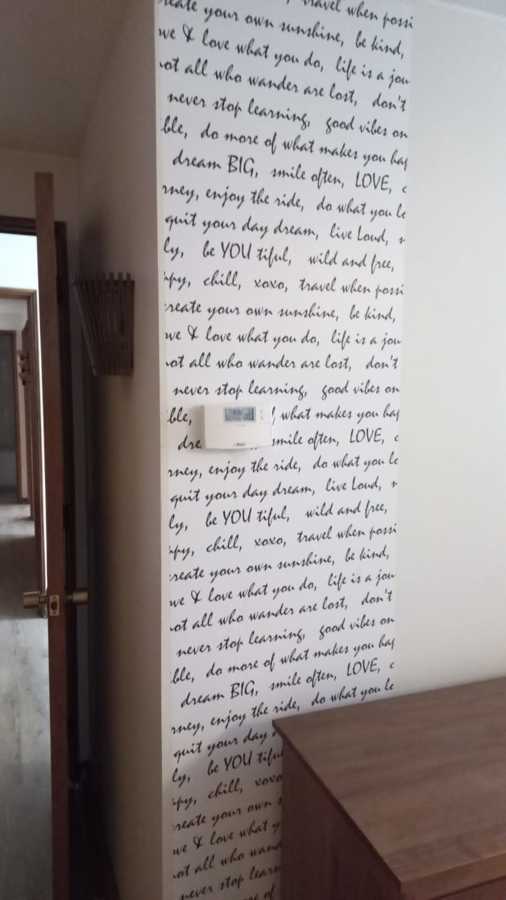 travel when possi
reate your own sunshine, be kind,
we & love what you do, life is a jou
not all who wander are lost, don't
never stop learning, good vibes on
ble, do more of what makes you hap
dream BIG, smile often, LOVE, c
rney, enjoy the ride, do what you lo
quit your day dream, live Loud, n
ly, be YOU tiful, wild and free,
ppy, chill, xoxo, travel when possi
create your own sunshine, be kind,
we & love what you do, life is a jou
not all who wander are lost, don't
never stop learning, good vibes on
ble, f what makes you hap
dre smile often, LOVE, c
rney, enjoy the ride, do what you lo
quit your day dream, live Loud, n
ly, be YOU tiful, wild and free,
ppy, chill, xoxo, travel when possi
create your own sunshine, be kind,
we & love what you do, life is a jou
not all who wander are lost, don't
never stop learning, good vibes on
ble, do more of what makes you hap
dream BIG, smile often, LOVE, c
rney, enjoy the ride, do what you lo
quit your day d
ly, be YOU tiful
ppy, chill, xoxo
create your own s
we & love what y
not all who wand
never stop learn
ble, do more of